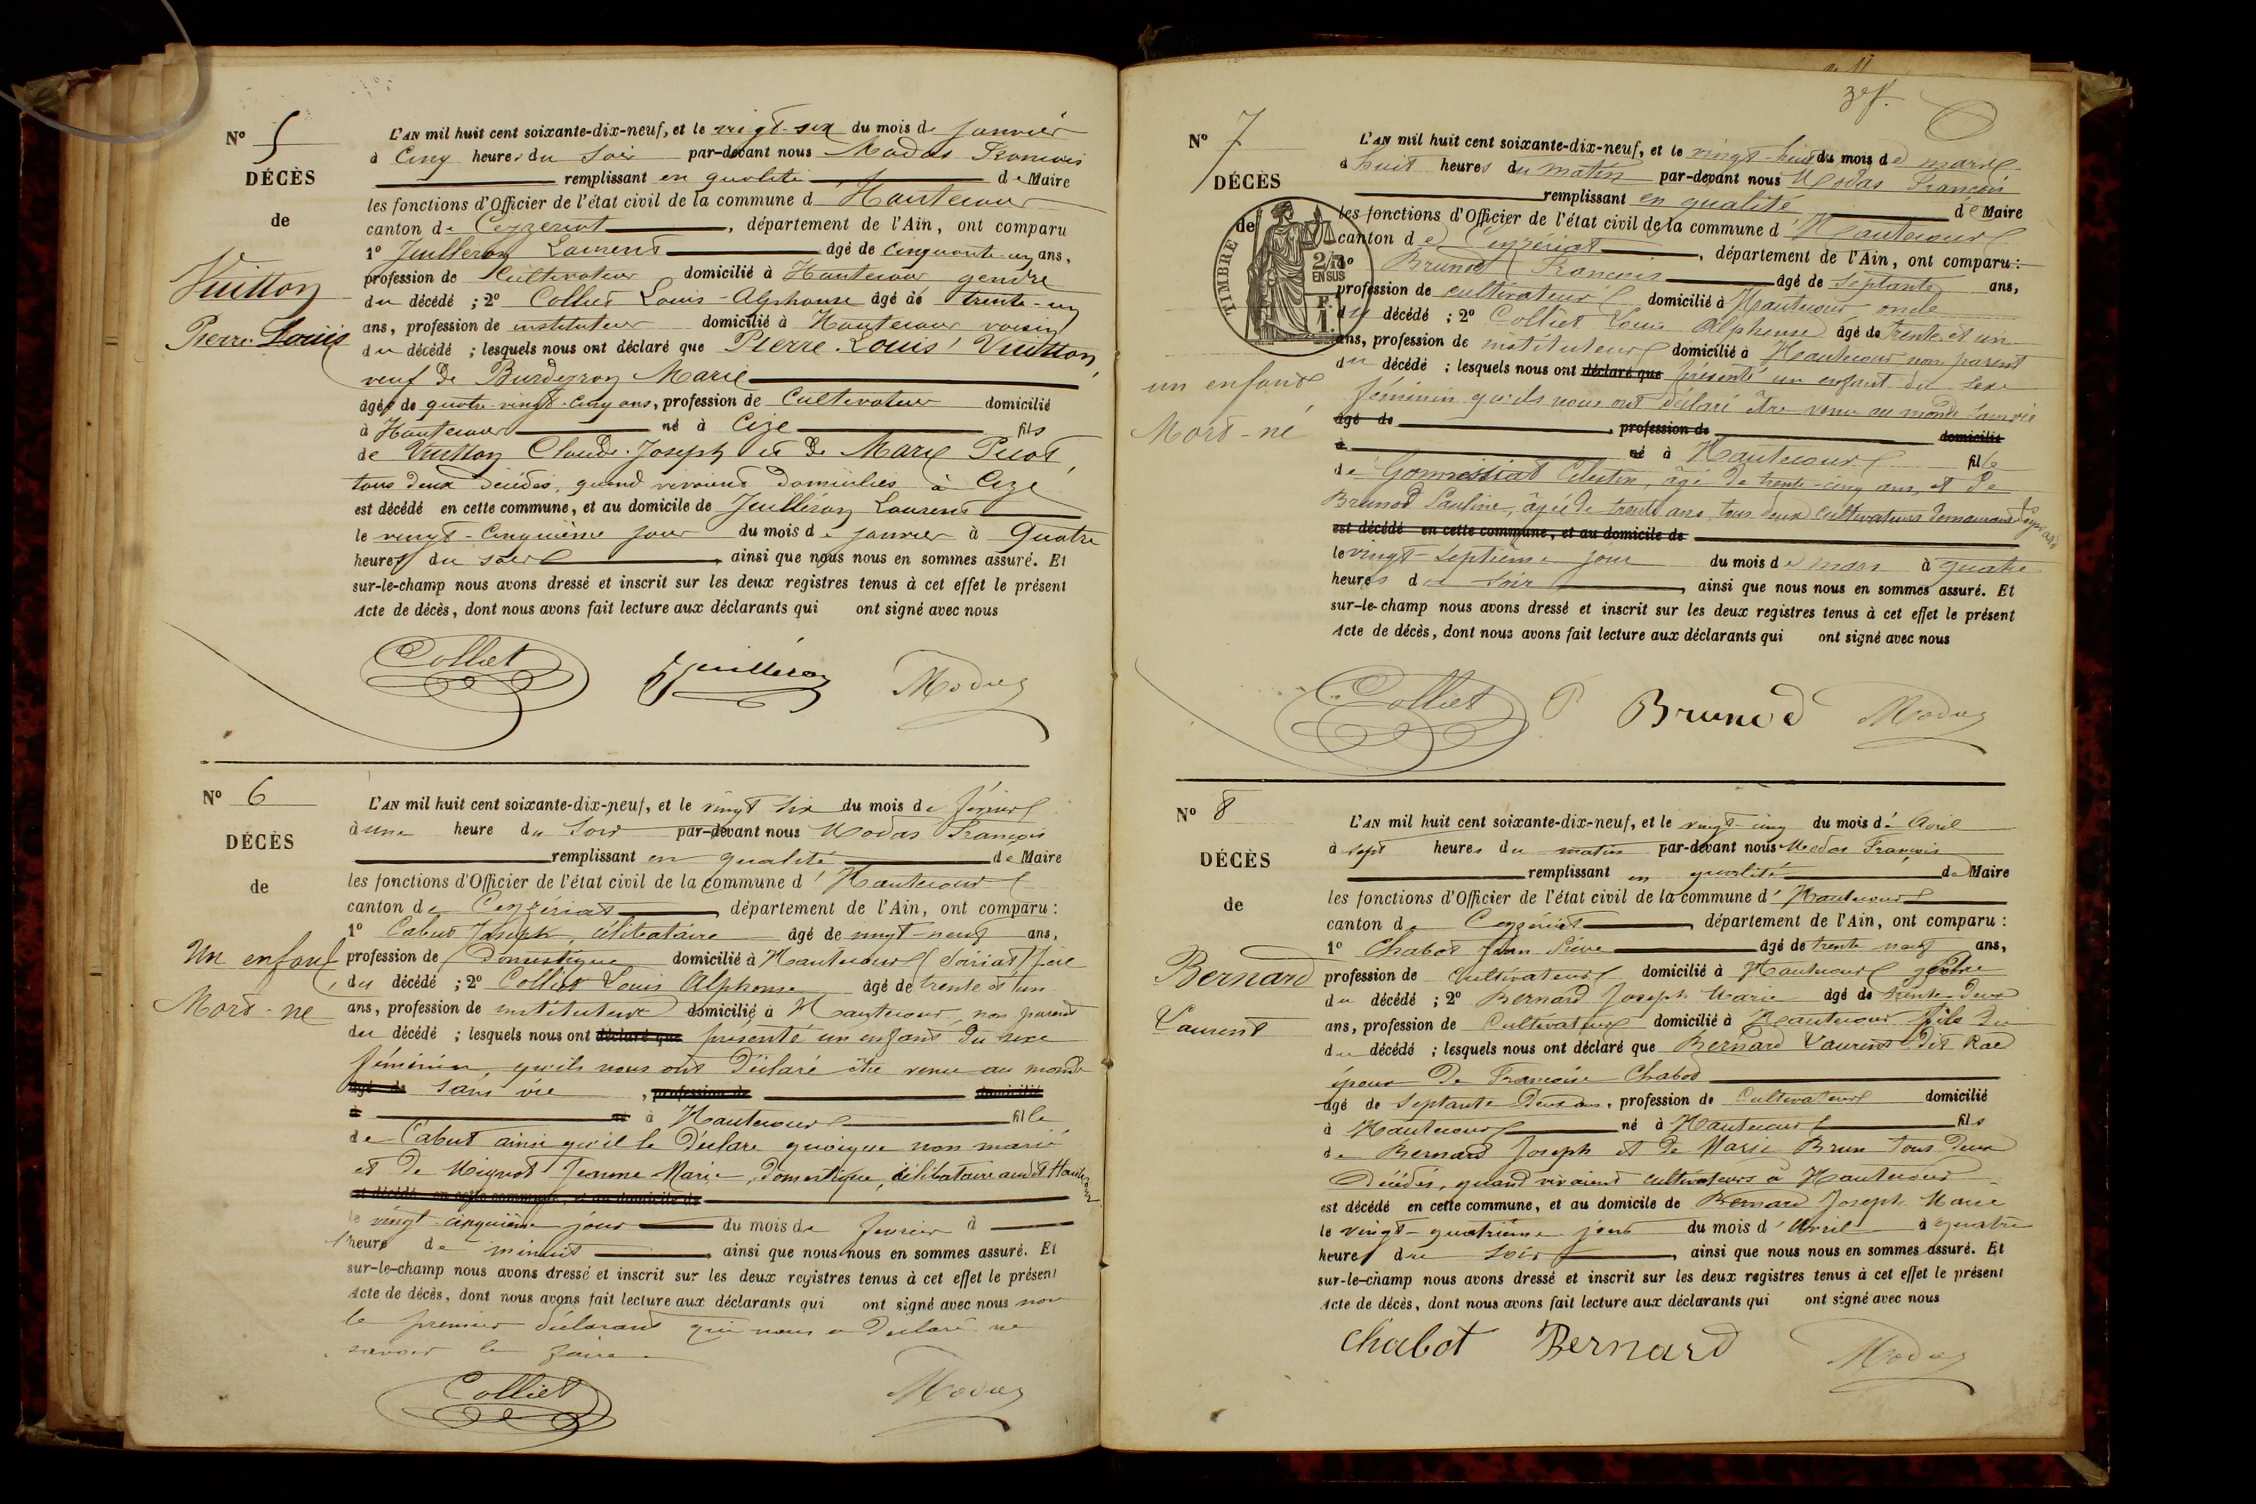 Nº 5
DÉCÈS
de
Vuitton
Pierre Louis
L'AN mil huit cent soixante-dix-neuf, et le vingt-six du mois de janvier
à Cinq heures du soir par-devant nous Modas François
remplissant en qualité de Maire
les fonctions d'Officier de l'état civil de la commune d'Hautecour
canton de Ceyzeriat, département de l'Ain, ont comparu
1º Juilleron Laurent âgé de cinquante-un ans,
profession de Cultivateur domicilié à Hautecour gendre
du décédé ; 2º Colliet Louis-Alphonse âgé de trente-un
ans, profession de instituteur domicilié à Hautecour voisin
du décédé ; lesquels nous ont déclaré que Pierre-Louis Vuitton,
veuf de Burdeyron Marie
âgé de quatre-vingt-cinq ans, profession de Cultivateur domicilié
à Hautecour né à Cize fils
de Vuitton Claude-Joseph et de Marie Picot,
tous deux décédés, quand vivaient domiciliés à Cize
est décédé en cette commune, et au domicile de Juilléron Laurent
le vingt-cinquième jour du mois de janvier à Quatre
heures du soir, ainsi que nous nous en sommes assuré. Et
sur-le-champ nous avons dressé et inscrit sur les deux registres tenus à cet effet le présent
Acte de décès, dont nous avons fait lecture aux déclarants qui ont signé avec nous
Colliet Juilléron Modas
Nº 6
DÉCÈS
de
Un enfant
Mort-né
L'AN mil huit cent soixante-dix-neuf, et le vingt six du mois de février
à une heure du soir par-devant nous Modas François
remplissant en qualité de Maire
les fonctions d'Officier de l'état civil de la commune d'Hautecour
canton de Ceyzériat, département de l'Ain, ont comparu :
1º Cabut Joseph, célibataire âgé de vingt-neuf ans,
profession de Domestique domicilié à Hautecour père
du décédé ; 2º Colliet Louis Alphonse âgé de trente et un
ans, profession de instituteur domicilié à Hautecour, non parent
du décédé ; lesquels nous ont déclaré que présenté un enfant du sexe
féminin, qu'ils nous ont déclaré être venu au monde
âgé de sans vie, profession de domicilié
à né à Hautecour fille
de Cabut ainsi qu'il le déclare quoique non marié
et de Mignot Jeanne Marie, domestique, célibataire audit Hautecour
est décédé en cette commune, et au domicile de
le vingt-cinquième jour du mois de février à
heure de minuit, ainsi que nous nous en sommes assuré. Et
sur-le-champ nous avons dressé et inscrit sur les deux registres tenus à cet effet le présent
Acte de décès, dont nous avons fait lecture aux déclarants qui ont signé avec nous non
le premier déclarant qui nous a déclaré ne
savoir le faire.
Colliet Modas
3e f.
Nº 7
DÉCÈS
de
TIMBRE
2/10
EN SUS
un enfant
Mort-né
L'AN mil huit cent soixante-dix-neuf, et le vingt-huit du mois de mars
à huit heures du matin par-devant nous Modas François
remplissant en qualité de Maire
les fonctions d'Officier de l'état civil de la commune d'Hautecour
canton de Ceyzériat, département de l'Ain, ont comparu :
1º Brunod François âgé de septante ans,
profession de cultivateur domicilié à Hautecour oncle
du décédé ; 2º Colliet Louis Alphonse âgé de trente et un
ans, profession de instituteur domicilié à Hautecour non parent
du décédé ; lesquels nous ont déclaré que présenté un enfant du sexe
féminin qu'ils nous ont déclaré être venu au monde sans vie
âgé de, profession de domicilié
à né à Hautecour fille
de Gommessiat Célestin, âgé de trente-cinq ans, et de
Brunod Pauline, âgée de trente ans, tous deux cultivateurs demeurant
est décédé en cette commune, et au domicile de
le vingt-septième jour du mois de mars à quatre
heures du soir, ainsi que nous nous en sommes assuré. Et
sur-le-champ nous avons dressé et inscrit sur les deux registres tenus à cet effet le présent
Acte de décès, dont nous avons fait lecture aux déclarants qui ont signé avec nous
Colliet Brunod Modas
Nº 8
DÉCÈS
de
Bernard
Laurent
L'AN mil huit cent soixante-dix-neuf, et le vingt-cinq du mois d'Avril
à sept heures du matin par-devant nous Modas François
remplissant en qualité de Maire
les fonctions d'Officier de l'état civil de la commune d'Hautecour
canton de Ceyzériat, département de l'Ain, ont comparu :
1º Chabot Jean Pierre âgé de trente neuf ans,
profession de cultivateur domicilié à Hautecour gendre
du décédé ; 2º Bernard Joseph Marie âgé de trente-deux
ans, profession de Cultivateur domicilié à Hautecour fils du
du décédé ; lesquels nous ont déclaré que Bernard Laurent dit Rae
époux de Françoise Chabod
âgé de septante deux ans, profession de Cultivateur domicilié
à Hautecour né à Hautecour fils
de Bernard Joseph et de Marie Brun tous deux
Décédés, quand vivaient cultivateurs à Hautecour
est décédé en cette commune, et au domicile de Bernard Joseph Marie
le vingt-quatrième jour du mois d'Avril à quatre
heures du soir, ainsi que nous nous en sommes assuré. Et
sur-le-champ nous avons dressé et inscrit sur les deux registres tenus à cet effet le présent
Acte de décès, dont nous avons fait lecture aux déclarants qui ont signé avec nous
Chabot Bernard Modas